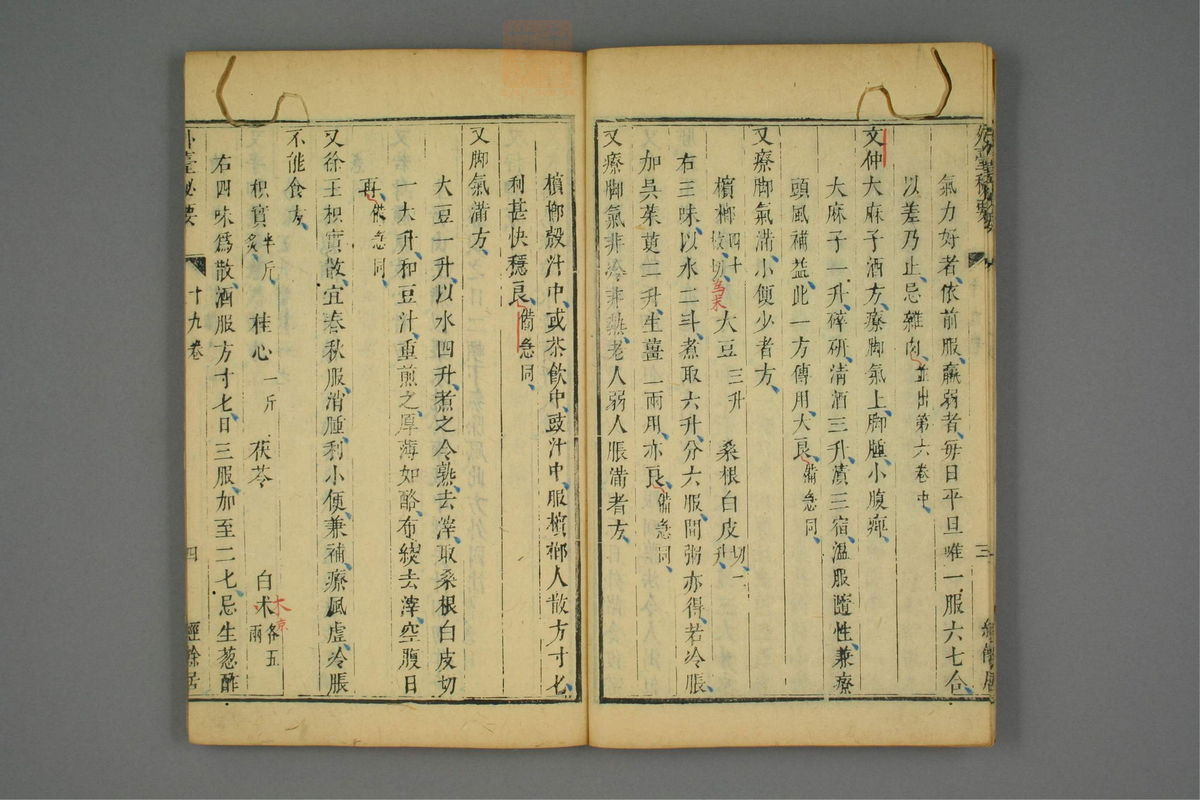 外臺秘要
三
經餘居
氣力好者依前服羸弱者每日平旦唯一服六七合
以差乃止忌雜肉並出第六卷中
文仲大麻子酒方療脚氣上脚腫小腹痺
大麻子一升碎研清酒三升漬三宿溫服隨性兼療
頭風補益此一方傳用大良備急同
又療脚氣滿小便少者方
檳榔四十枚切 大豆三升 桑根白皮切二升
右三味以水二斗煮取六升分六服間粥亦得若冷脹
加吳茱萸二升生薑一兩用亦良備急同
又療脚氣非冷非熱老人弱人脹滿者方
檳榔殼汁中或茶飲中豉汁中服檳榔人散方寸匕
利甚快穩良備急同
又脚氣滿方
大豆一升以水四升煮之令熟去滓取桑根白皮切
一大升和豆汁重煎之厚薄如酪布絞去滓空腹日
再備急同
又徐王枳實散宜春秋服消腫利小便兼補療風虛冷脹
不能食方
枳實半斤炙 桂心一斤 茯苓 白朮各五兩
右四味爲散酒服方寸七日三服加至二七忌生葱酢
外臺秘要
十九卷
四
經餘居